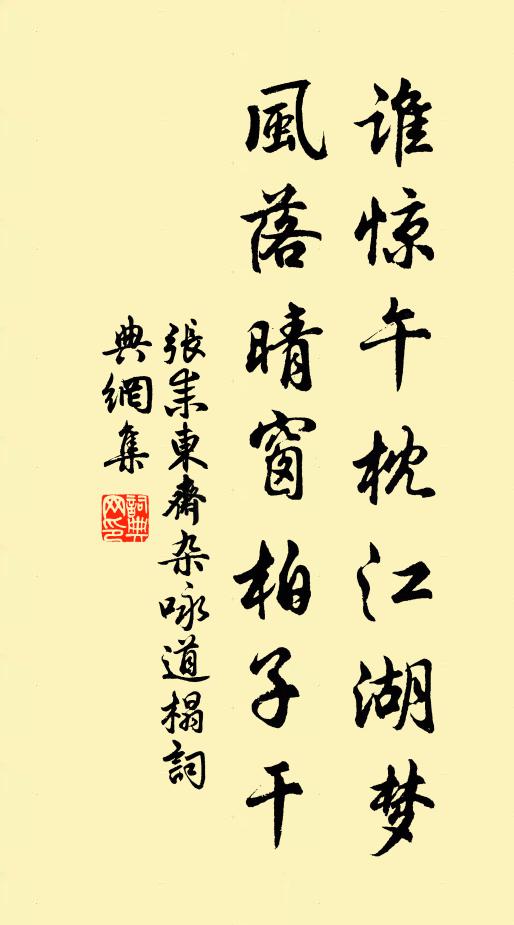 谁惊午枕江湖梦
風落晴窗柏子干
張耒東齋杂咏道榻詞
典網集
詞典網印